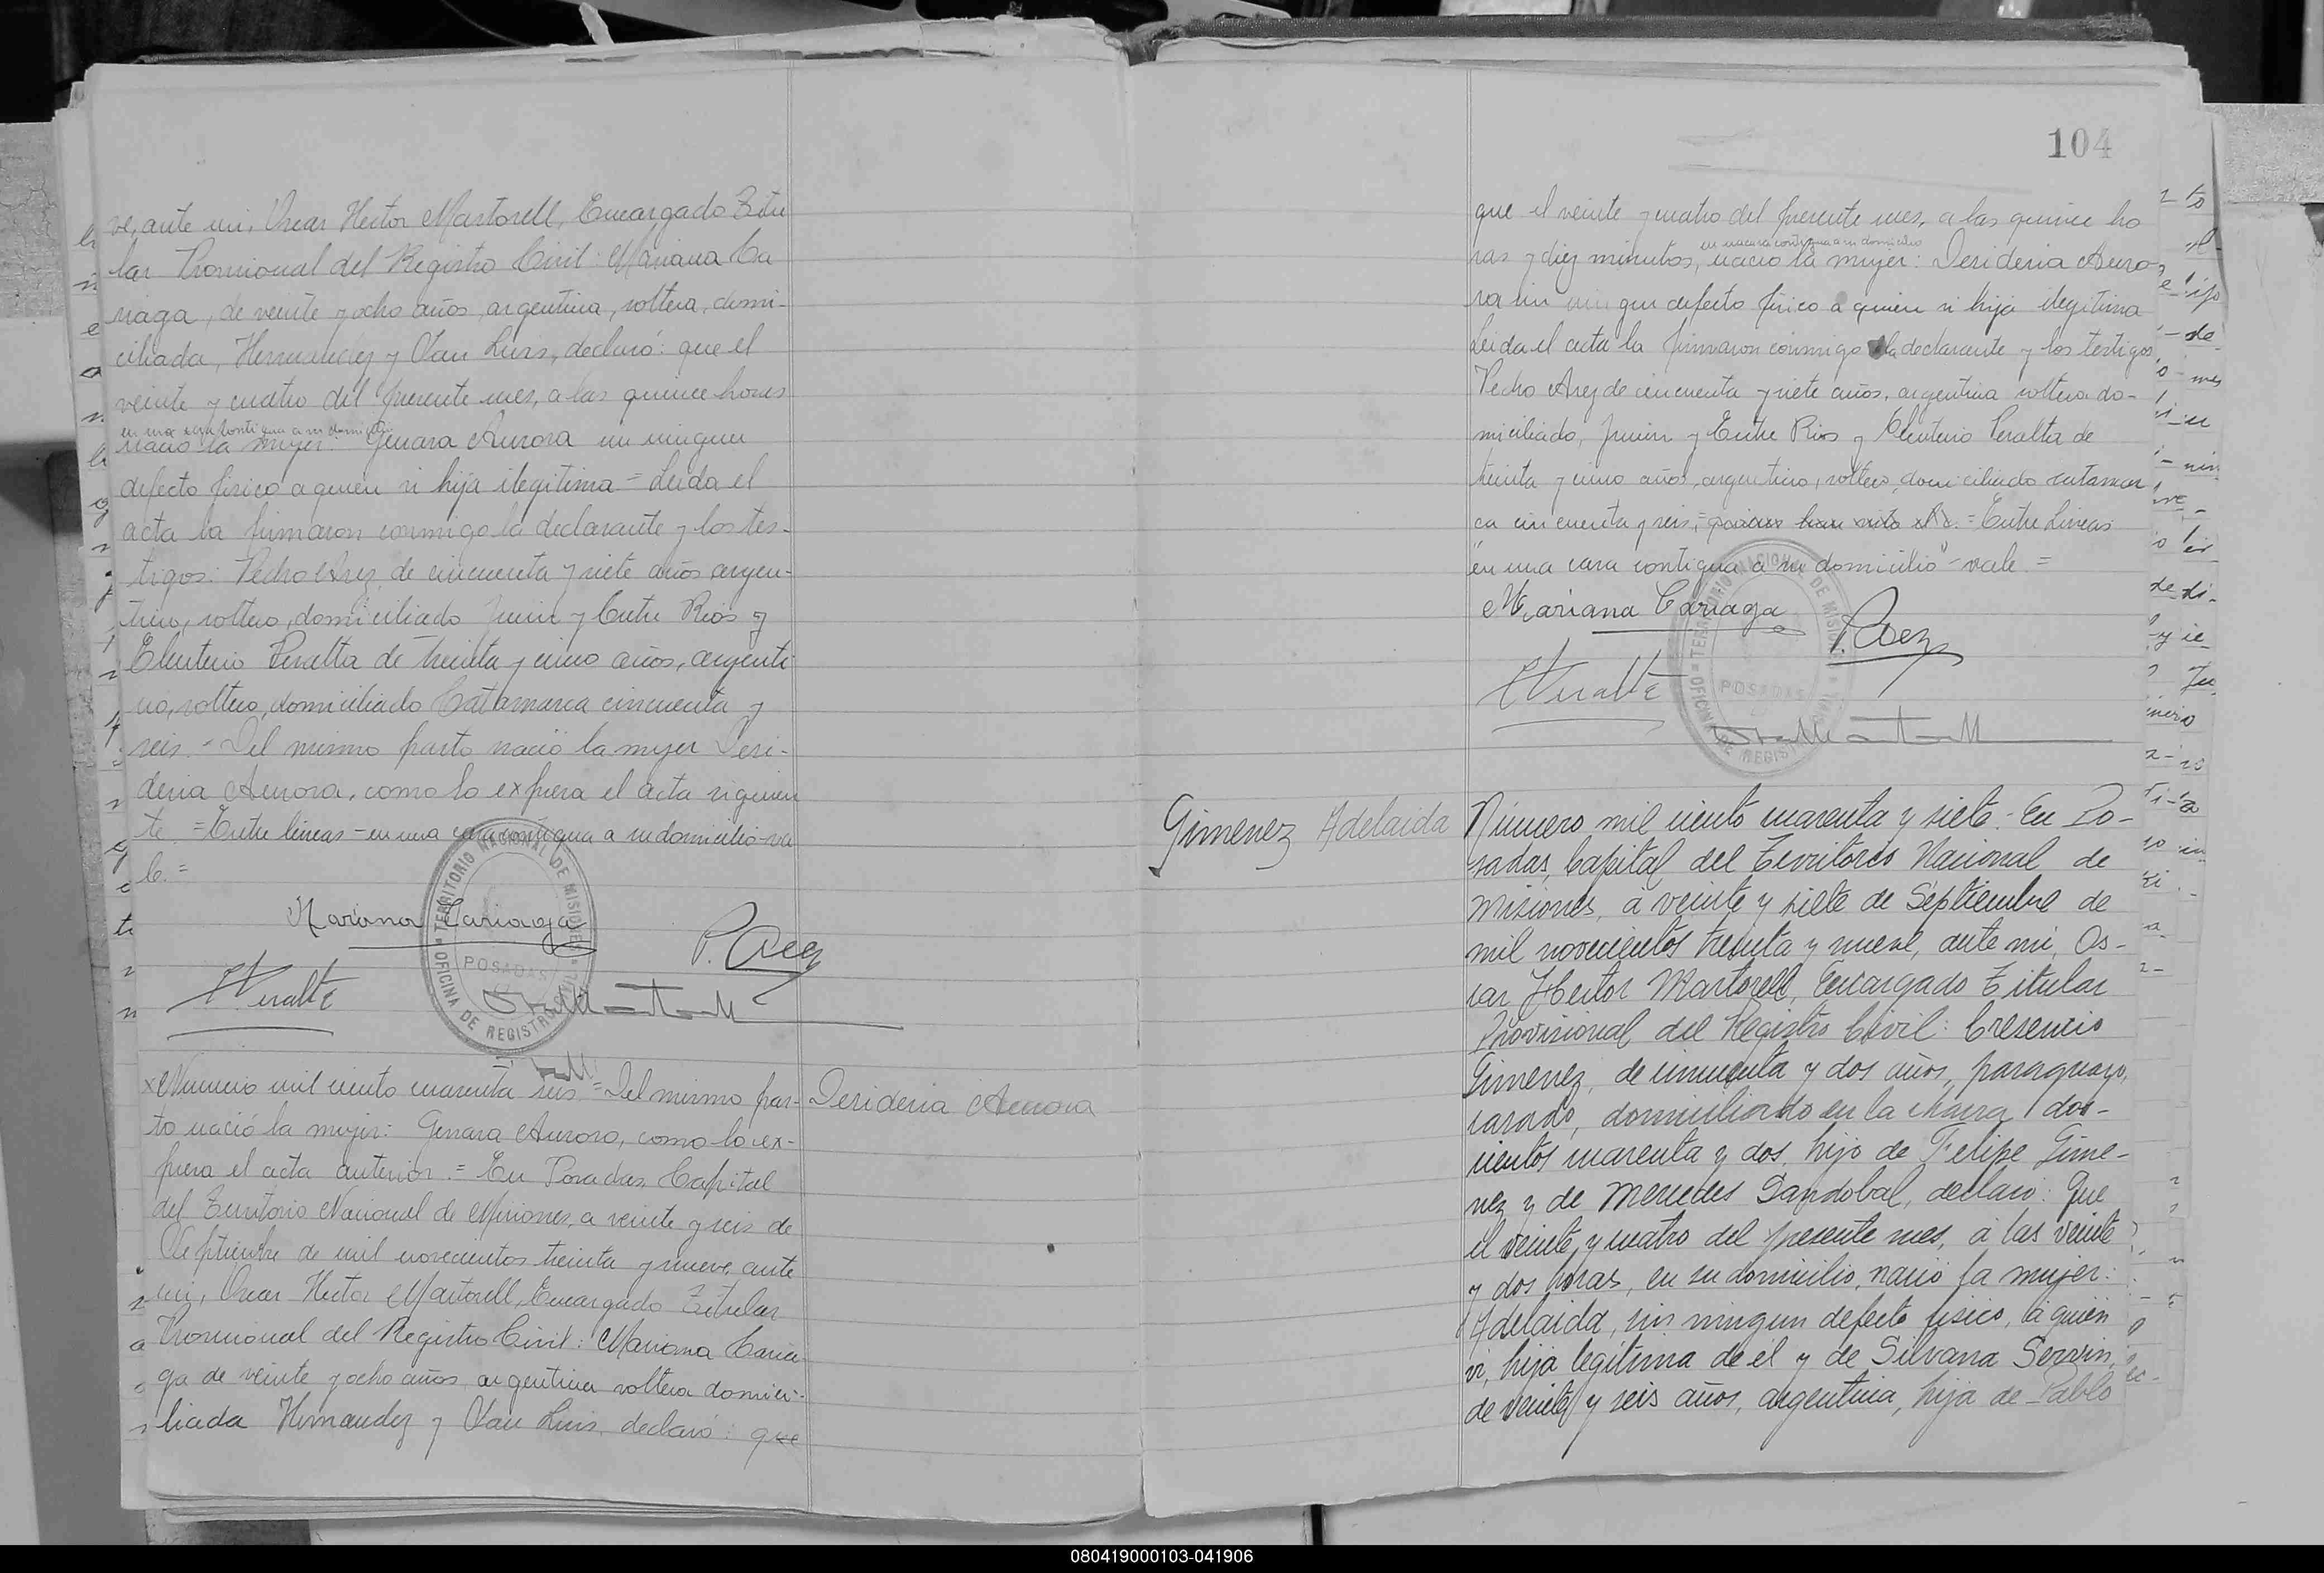 ve, ante mi, Oscar Hector Martorell, Encargado Titu
lar Provisional del Registro Civil: Mariana Ca
riaga, de veinte y ocho años, argentina, soltera, domi-
ciliada, Hernandez y San Luis, declaró: que el
veinte y cuatro del presente mes, a las quince horas
en una casa contigua a su domicilio
nació la mujer: Genara Aurora sin ningun
defecto fisico a quien vi hija ilegitima = Leida el
acta la firmaron conmigo la declarante y los tes-
tigos: Pedro Arez, de cincuenta y siete años argen-
tino, soltero, domiciliado Junin y Entre Rios y
Eleuterio Peralta de treinta y cinco años, argenti
no, soltero, domiciliado Catamarca cincuenta y
seis. - Del mismo parto nació la mujer Desi-
deria Aurora, como lo expresa el acta siguien
te. = Entre lineas - en una casa contigua a su domicilio - va
le. =
Mariana Cariaga
P. Aez
EPeralta
TERRITORIO NACIONAL DE MISIONES
POSADAS
OFICINA DE REGISTRO CIVIL
Numero mil ciento cuarenta seis = Del mismo par-
Desideria Aurora
to nació la mujer: Genara Aurora, como lo ex-
presa el acta anterior. = En Posadas, Capital
del Territorio Nacional de Misiones, a veinte y seis de
Septiembre de mil novecientos treinta y nueve, ante
mi, Oscar Hector Martorell, Encargado Titular
Provisional del Registro Civil: Mariana Caria
ga de veinte y ocho años, argentina soltera domici-
liada Hernandez y San Luis, declaró: que
104
que el veinte y cuatro del presente mes, a las quince ho
en una casa contigua a su domicilio
ras y diez minutos, nació la mujer: Desideria Auro-
ra sin ningun defecto fisico a quien vi hija ilegitima
Leida el acta la firmaron conmigo la declarante y los testigos,
Pedro Arez de cincuenta y siete años, argentino soltero do-
miciliado, Junin y Entre Rios y Eleuterio Peralta de
treinta y cinco años, argentino, soltero, domiciliado catamar
ca cincuenta y seis, = quienes han visto = Entre Lineas
"en una casa contigua a su domicilio" - vale =
Mariana Cariaga
P. Aez
EPeralta
TERRITORIO NACIONAL DE MISIONES
POSADAS
OFICINA DE REGISTRO CIVIL
Gimenez Adelaida
Número mil ciento cuarenta y siete. - En Po-
sadas, Capital del Territorio Nacional de
Misiones, a veinte y siete de Septiembre de
mil novecientos treinta y nueve, ante mi, Os-
car Hector Martorell, Encargado Titular
Provisional del Registro Civil: Cresencio
Gimenez, de cincuenta y dos años, paraguayo,
casado, domiciliado en la chacra dos-
cientos cuarenta y dos, hijo de Felipe Gime-
nez y de Mercedes Sandobal, declaró: Que
el veinte y cuatro del presente mes, a las veinte
y dos horas, en su domicilio, nació la mujer:
Adelaida, sin ningun defecto fisico, a quien
vi, hija legitima de el y de Silvana Servin,
de veinte y seis años, argentina, hija de Pablo
080419000103-041906